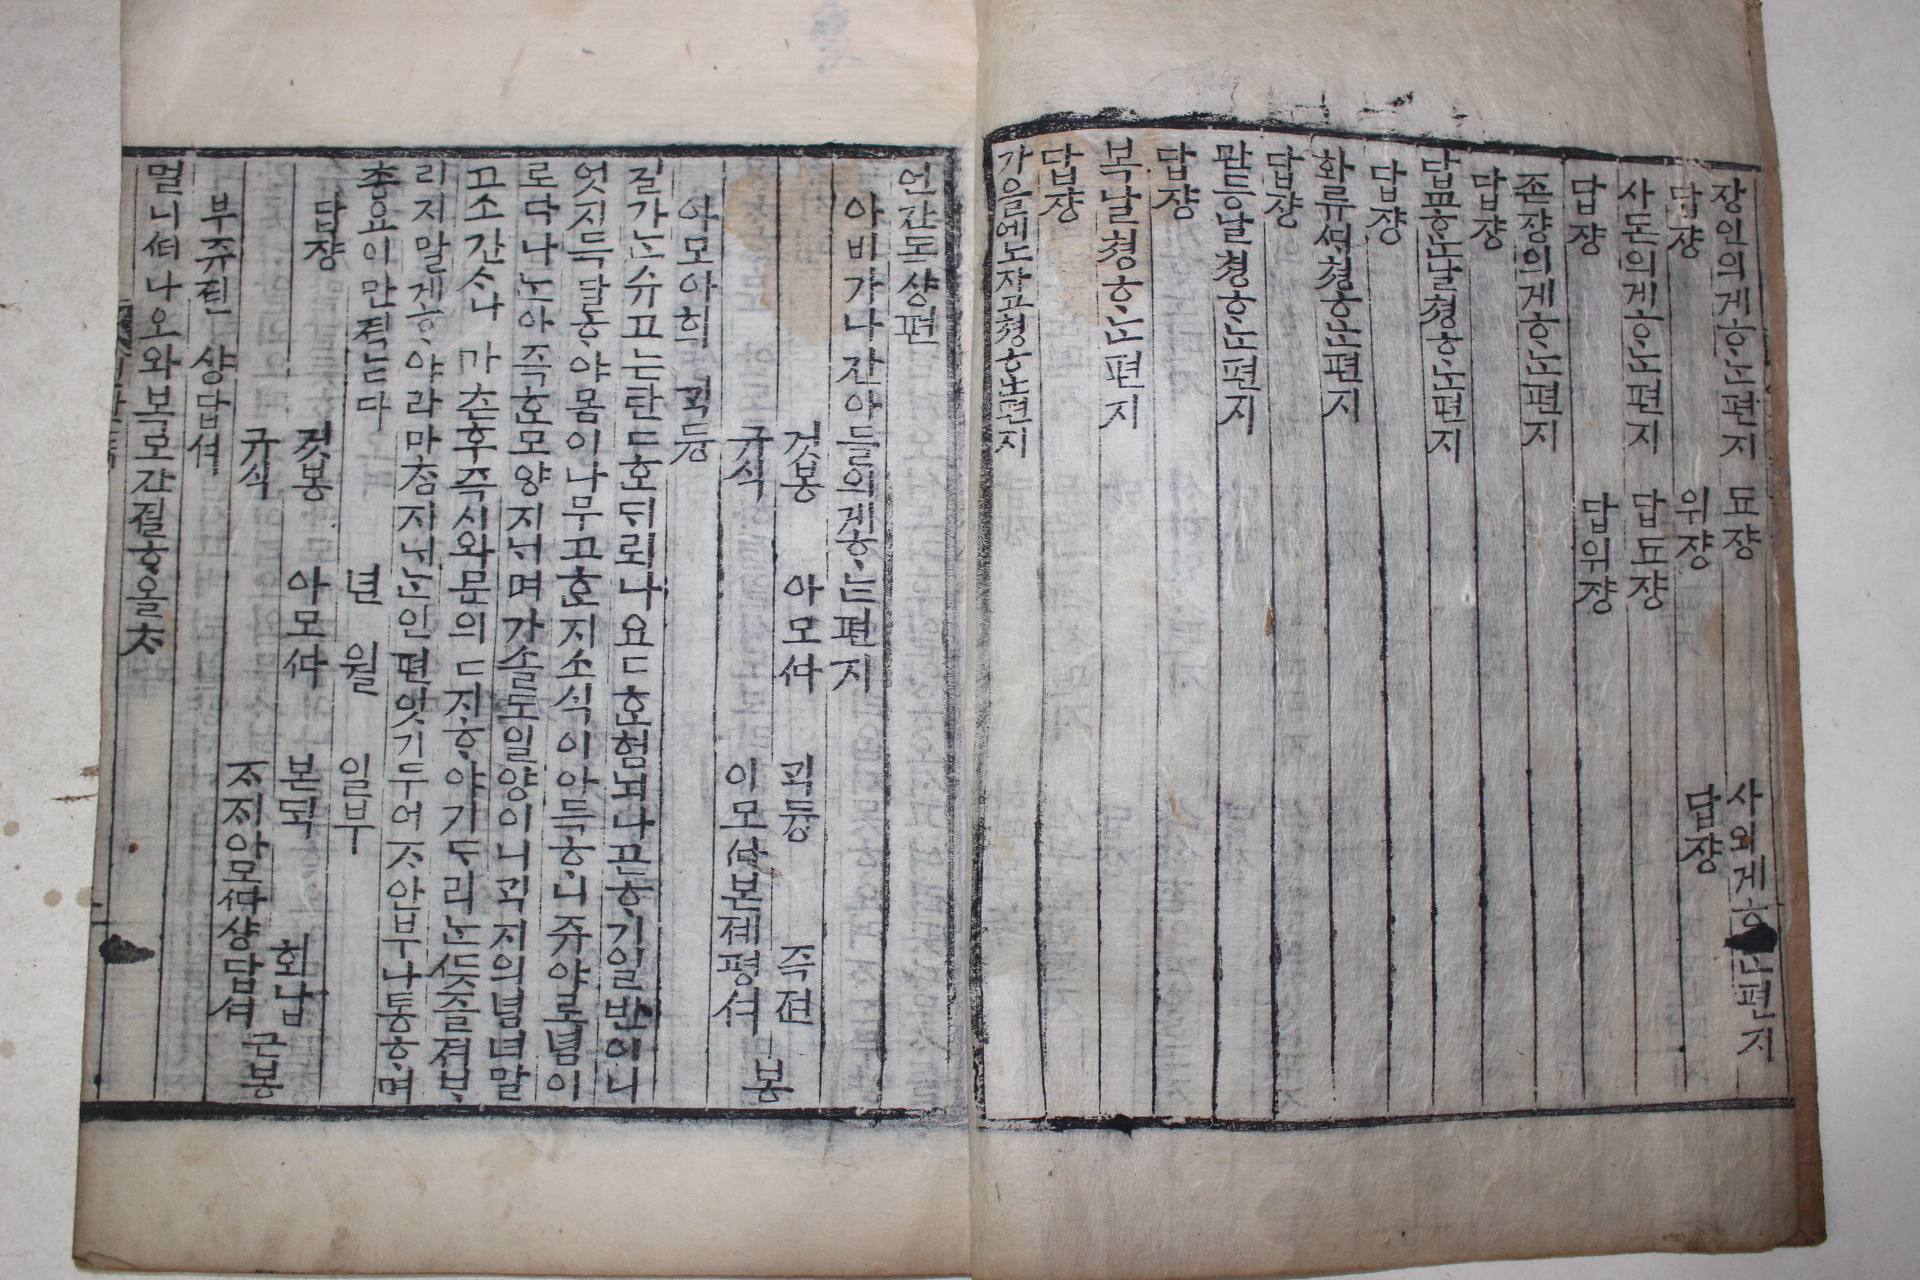 장인의게ᄒᆞᄂᆞᆫ편지 됴쟝 사외게ᄒᆞᄂᆞᆫ편지
답쟝 위쟝 답쟝
사돈의게ᄒᆞᄂᆞᆫ편지 답됴쟝
답쟝 답위쟝
존쟝의게ᄒᆞᄂᆞᆫ편지
답쟝
답교ᄒᆞᄂᆞᆫ날쳥ᄒᆞᄂᆞᆫ편지
답쟝
화류쳥ᄒᆞᄂᆞᆫ편지
답쟝
날쳥ᄒᆞᄂᆞᆫ편지
답쟝
복날쳥ᄒᆞᄂᆞᆫ편지
답쟝
가을에노쟈고쳥ᄒᆞᄂᆞᆫ편지
언간독샹편
아비가나간아들의게ᄒᆞᄂᆞᆫ편지
것봉 아모ᄯᅡ 긱듕 즉젼
규식 아모ᄯᅡ본졔평셔 봉
아모아희 긱듕
길가ᄂᆞᆫ슈고ᄂᆞᆫ탄ᄃᆞᆫᄒᆞᆫᄃᆡ로나요ᄃᆞᄒᆞᆫ험노나ᄀᆞᆺᄒᆞ기일반이니
엇지득달ᄒᆞ야몸이나무고ᄒᆞᆫ지소식이아득ᄒᆞ니쥬야로념이
로다나ᄂᆞᆫ아즉ᄒᆞᆫ모양지ᄂᆡ며가솔도일양이니ᄀᆡᆨ지의념녀말
고소간ᄉᆞ나 마촌후즉시와문의ᄃᆡ지ᄒᆞ야기ᄃᆞ리ᄂᆞᆫᄯᅳᆺ즐져ᄇᆞ
리지말게ᄒᆞ야라마ᄎᆞᆷ지ᄂᆡᄂᆞᆫ인편잇기두어ᄌᆞ안부나통ᄒᆞ며
총요이만젹ᄂᆞᆫ다
년 월 일 부
답쟝 것봉 아모ᄯᅡ 본ᄃᆡᆨ 회납
규식 ᄌᆞᄌᆡ아모ᄯᅡ샹답셔 근봉
부쥬젼 샹답셔
멀니ᄯᅥ나오와복모간졀ᄒᆞ올ᄎᆞ